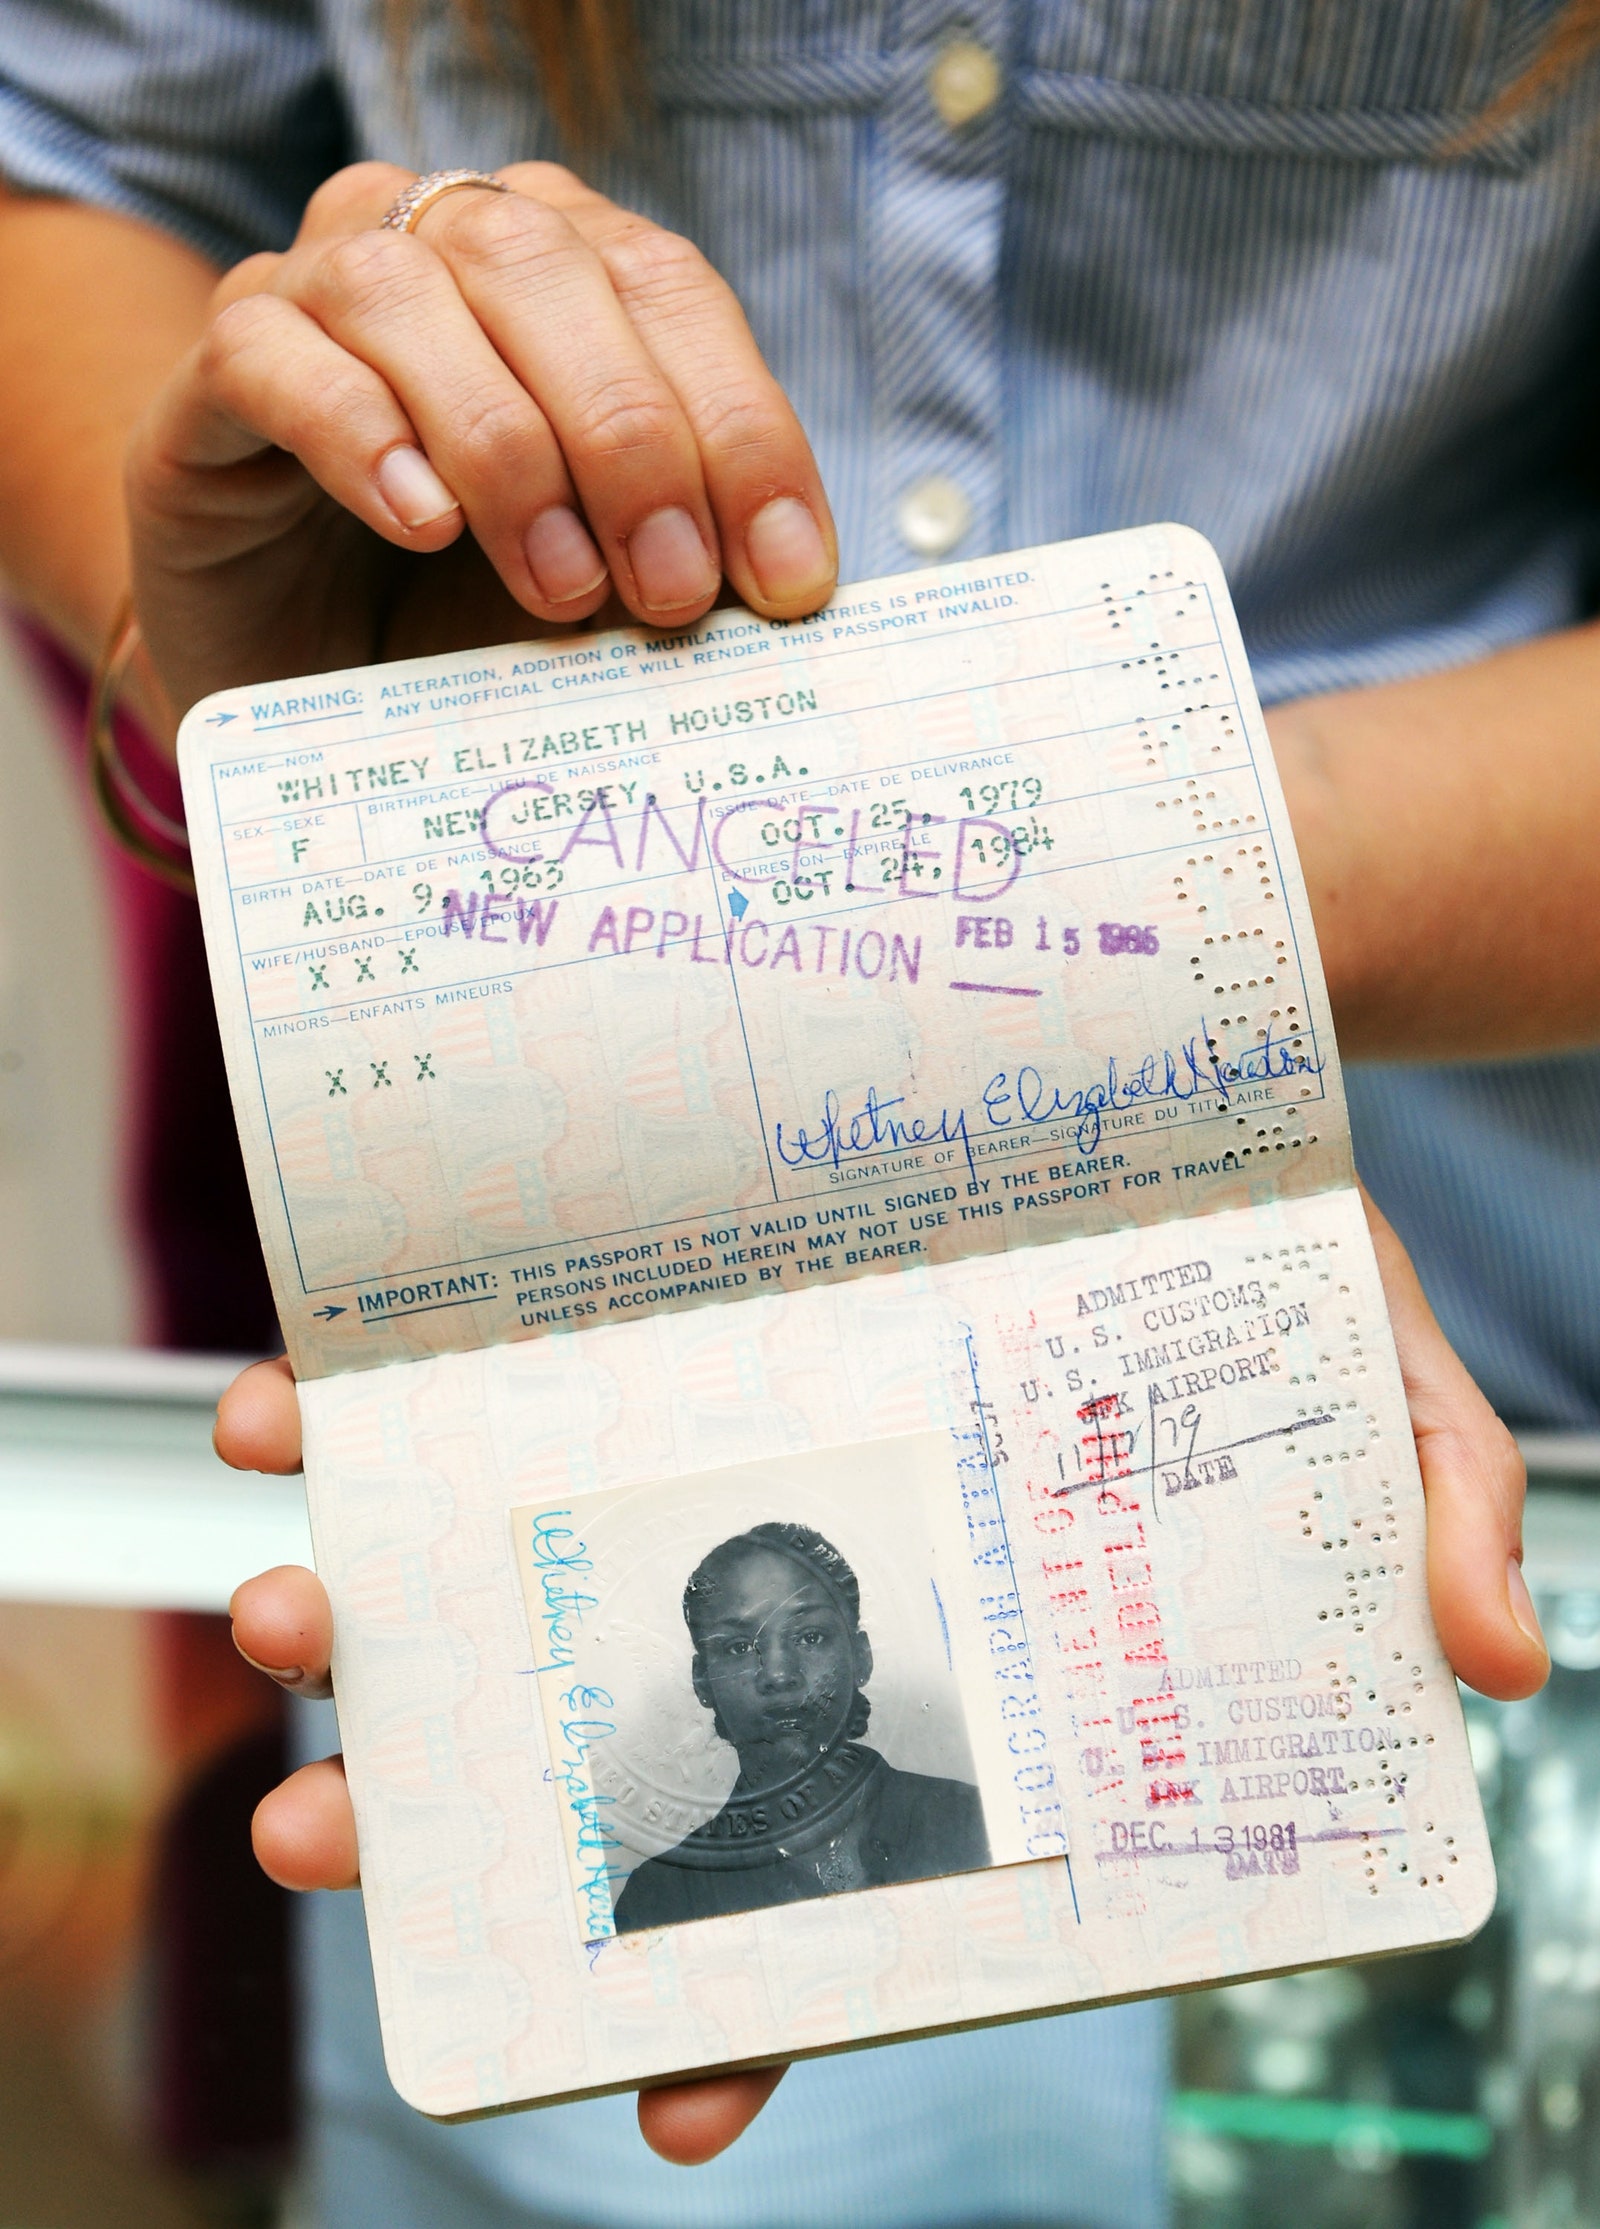 WARNING: ALTERATION, ADDITION OR MUTILATION OF ENTRIES IS PROHIBITED.
ANY UNOFFICIAL CHANGE WILL RENDER THIS PASSPORT INVALID.
NAME—NOM
WHITNEY ELIZABETH HOUSTON
SEX—SEXE
F
BIRTHPLACE—LIEU DE NAISSANCE
NEW JERSEY, U.S.A.
BIRTH DATE—DATE DE NAISSANCE
AUG. 9, 1963
ISSUE DATE—DATE DE DELIVRANCE
OCT. 25, 1979
EXPIRES ON—EXPIRE LE
OCT. 24, 1984
CANCELED
NEW APPLICATION FEB 15
WIFE/HUSBAND—EPOUSE/EPOUX
X X X
MINORS—ENFANTS MINEURS
X X X
Whitney Elizabeth Houston
SIGNATURE OF BEARER—SIGNATURE DU TITULAIRE
IMPORTANT: THIS PASSPORT IS NOT VALID UNTIL SIGNED BY THE BEARER.
PERSONS INCLUDED HEREIN MAY NOT USE THIS PASSPORT FOR TRAVEL
UNLESS ACCOMPANIED BY THE BEARER.
ADMITTED
U. S. CUSTOMS
U. S. IMMIGRATION
JFK AIRPORT
11/17/79
DATE
Whitney Elizabeth Houston
STATES OF AM
ADMITTED
U. S. CUSTOMS
U. S. IMMIGRATION
JFK AIRPORT
DEC. 13 1981
DATE